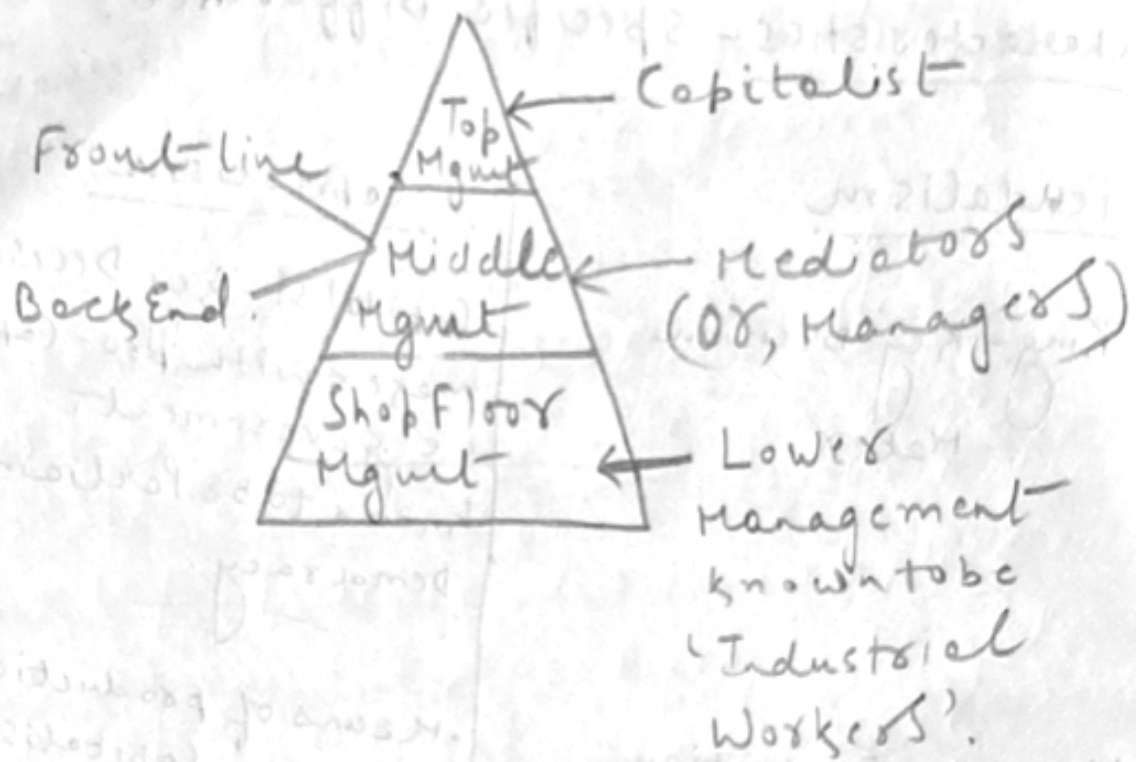 Top
Mgmt
Capitalist
Front-line
Back End.
Middle
Mgmt
Mediators
(or, Managers)
Shop Floor
Mgmt
Lower
Management
known to be
'Industrial
Workers'.